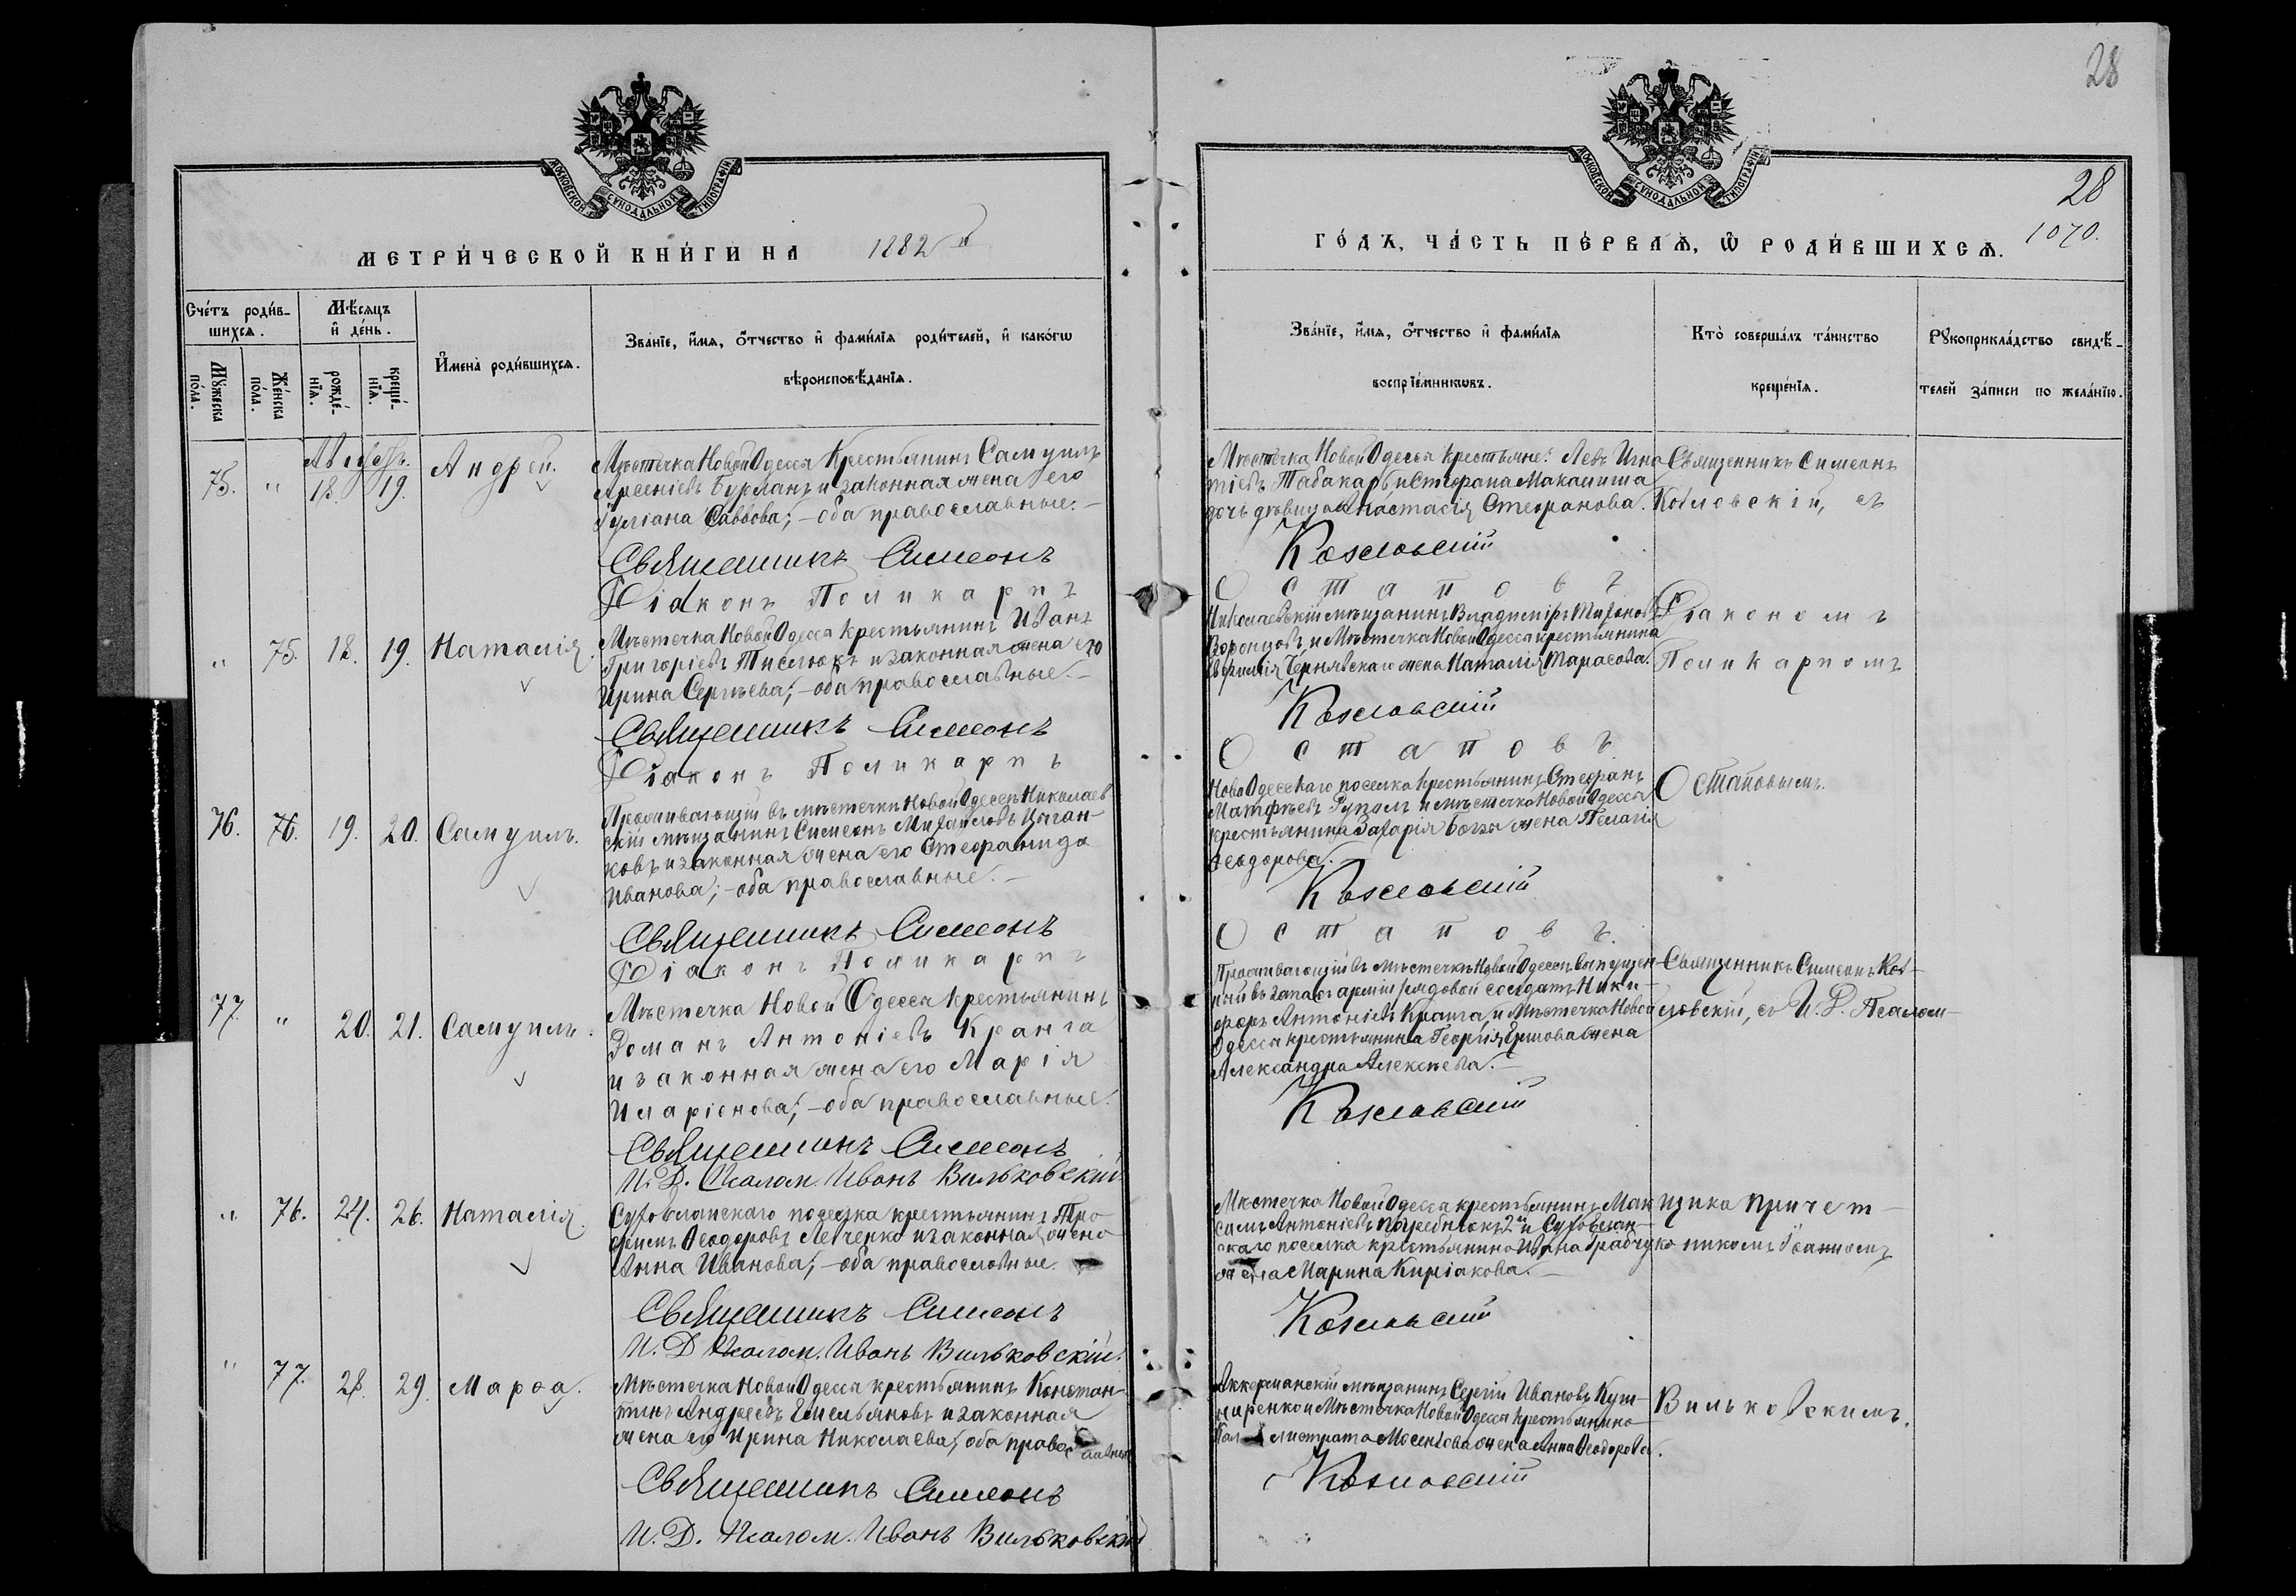 28
МОСКОВСКОЙ СѴНОДАЛЬНОЙ ТИПОГРАФІИ
МОСКОВСКОЙ СѴНОДАЛЬНОЙ ТИПОГРАФІИ
28
1070.
МЕТРИ́ЧЕСКОЙ КНИ́ГИ НА 1882й
ГО́ДЪ, ЧА́СТЬ ПЕ́РВАѦ, Ѡ҆ РОДИ́ВШИХСѦ.
Сче́тъ роди́в-
шихсѧ.
Мꙋ́жеска по́ла.
Же́нска по́ла.
Мѣ́сѧцъ
и҆ де́нь.
рожде́-
нїѧ.
креще́-
нїѧ.
И҆мена̀ роди́вшихсѧ.
Зва́нїе, и҆́мѧ, ѻ҆́тчество и҆ фами́лїѧ роди́телей, и҆ како́гѡ
вѣроисповѣ́данїѧ.
Зва́нїе, и҆́мѧ, ѻ҆́тчество и҆ фами́лїѧ
воспрїе́мникѡвъ.
Кто̀ соверша́лъ та́инство
креще́нїѧ.
Рꙋкоприкла́дство свидѣ́-
телей за́писи по жела́нїю.
Августъ.
75. " 18. 19. Андрей.
Мѣстечка Новой Одесса Крестьянинъ Самуилъ
Арсеніевъ Бурланъ и законная жена его
Іуліана Саввова; – оба православные. –
Священникъ Симеонъ
Діаконъ Поликарпъ
Мѣстечка Новой Одесса крестьяне: Левъ Игна
тіевъ Табакарь и Стефана Макалиша
дочь дѣвица Анастасія Стефанова.
Козловскій
Остаповъ
Священникъ Симеонъ
Козловскій, съ
" 75. 18. 19. Наталія.
Мѣстечка Новой Одесса крестьянинъ Иванъ
Григоріевъ Тислюкъ и законная жена его
Ирина Сергѣева; – оба православные. –
Священникъ Симеонъ
Діаконъ Поликарпъ
Николаевскій мѣщанинъ Владиміръ Тихоновъ
Воронцовъ, и Мѣстечка Новой Одесса крестьянина
Чернявскаго жена Наталія Тарасова.
Козловскій
Остаповъ
Діакономъ
Поликарпомъ
76. 76. 19. 20. Самуилъ.
Проживающій въ мѣстечкѣ Новой Одессѣ Николаев
скій мѣщанинъ Симеонъ Михайловъ Цыган-
ковъ и законная жена его Стефанида
Иванова; – оба православные. –
Священникъ Симеонъ
Діаконъ Поликарпъ
Ново Одесскаго поселка крестьянинъ Стефанъ
Матфѣевъ и мѣстечка Новой Одесса
крестьянина Захарія жена Пелагія
Ѳеодорова.
Козловскій
Остаповъ.
Остаповымъ.
77. " 20. 21. Самуилъ.
Мѣстечка Новой Одесса крестьянинъ
Романъ Антоніевъ Кранга
и законная жена его Марія
Иларіонова; – оба православные.
Священникъ Симеонъ
И. Д. Псалом. Иванъ Вильковскій.
Проживающій въ мѣстечкѣ Новой Одессѣ Выпущен-
ный въ запасъ арміи рядовой солдатъ Ники-
форъ Антоніевъ Кранга, и Мѣстечка Новой
Одесса крестьянина Георгія Ершова жена
Александра Алексѣева. –
Козловскій
Священникъ Симеонъ Коз-
ловскій, съ И. Д. Псалом-
" 76. 24. 26. Наталія.
Суховланскаго поселка крестьянинъ Тро-
фимъ Ѳеодоровъ Левченко и законная жена
Анна Иванова; – оба православные.
Священникъ Симеонъ
И. Д. Псалом. Иванъ Вильковскій.
Мѣстечка Новой Одесса крестьянинъ Мак
симъ Антоніевъ Погребнюкъ 2й и
скаго поселка крестьянина Ивана Грабчука
жена Марина Киріакова. –
Козловскій
щика Причет-
никомъ Іоанномъ
" 77. 28. 29. Марѳа.
Мѣстечка Новой Одесса крестьянинъ Констан-
тинъ Андреевъ Емельяновъ и законная
жена его Ирина Николаева, оба православные
Священникъ Симеонъ
И. Д. Псалом. Иванъ Вильковскій
Аккерманскій мѣщанинъ Сергій Ивановъ Куш-
наренко и Мѣстечка Новой Одесса крестьянина
Каллистрата жена Анна Ѳеодорова.
Козловскій
Вильковскимъ.